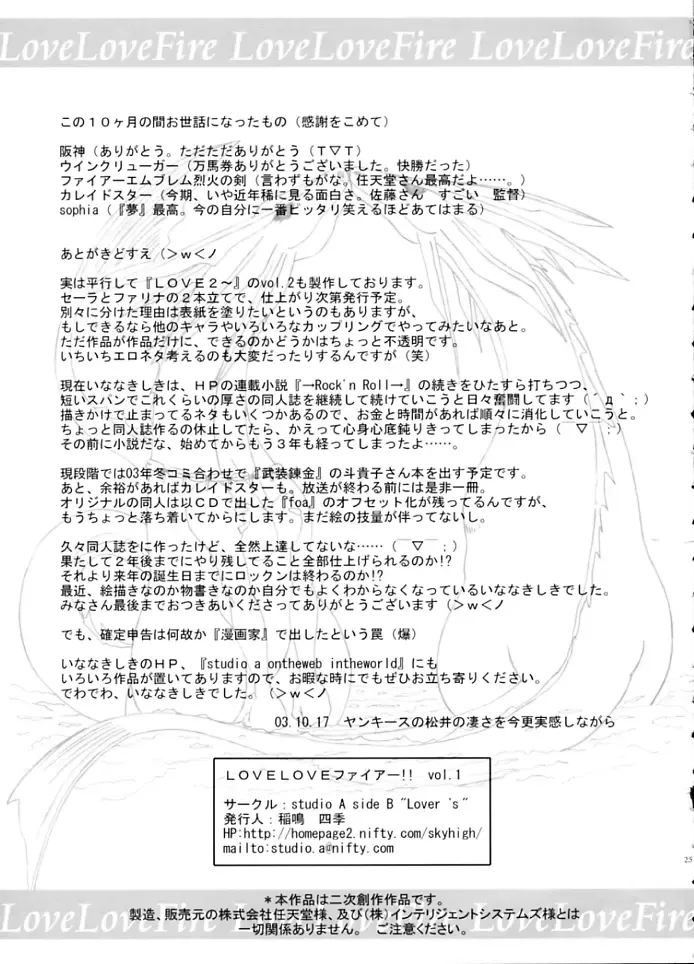 LoveLoveFire LoveLoveFire LoveLoveFire
この１０ヶ月の間お世話になったもの（感謝をこめて）
阪神（ありがとう。ただただありがとう（Ｔ▽Ｔ）
ウインクリューガー（万馬券ありがとうございました。快勝だった）
ファイアーエムブレム烈火の剣（言わずもがな。任天堂さん最高だよ……。）
カレイドスター（今期、いや近年稀に見る面白さ。佐藤さん　すごい　監督）
sophia（『夢』最高。今の自分に一番ピッタリ笑えるほどあてはまる）
あとがきどすえ（＞ｗ＜ノ
実は平行して『ＬＯＶＥ２～』のvol.2も製作しております。
セーラとファリナの２本立てで、仕上がり次第発行予定。
別々に分けた理由は表紙を塗りたいというのもありますが、
もしできるなら他のキャラやいろいろなカップリングでやってみたいなあと。
ただ作品が作品だけに、できるのかどうかはちょっと不透明です。
いちいちエロネタ考えるのも大変だったりするんですが（笑）
現在いななきしきは、ＨＰの連載小説『→Rock'n Roll→』の続きをひたすら打ちつつ、
短いスパンでこれくらいの厚さの同人誌を継続して続けていこうと日々奮闘してます（´д｀；）
描きかけで止まってるネタもいくつかあるので、お金と時間があれば順々に消化していこうと。
ちょっと同人誌作るの休止してたら、かえって心身心底鈍りきってしまったから（￣▽￣；）
その前に小説だな、始めてからもう３年も経ってしまったよ……。
現段階では03年冬コミ合わせで『武装錬金』の斗貴子さん本を出す予定です。
あと、余裕があればカレイドスターも。放送が終わる前には是非一冊。
オリジナルの同人は以ＣＤで出した『foa』のオフセット化が残ってるんですが、
もうちょっと落ち着いてからにします。まだ絵の技量が伴ってないし。
久々同人誌をに作ったけど、全然上達してないな……（￣▽￣；）
果たして２年後までにやり残してること全部仕上げられるのか!?
それより来年の誕生日までにロックンは終わるのか!?
最近、絵描きなのか物書きなのか自分でもよくわからなくなっているいななきしきでした。
みなさん最後までおつきあいくださってありがとうございます（＞ｗ＜ノ
でも、確定申告は何故か『漫画家』で出したという罠（爆）
いななきしきのＨＰ、『studio a ontheweb intheworld』にも
いろいろ作品が置いてありますので、お暇な時にでもぜひお立ち寄りください。
でわでわ、いななきしきでした。（＞ｗ＜ノ
03.10.17　ヤンキースの松井の凄さを今更実感しながら
ＬＯＶＥＬＯＶＥファイアー!!　vol.1
サークル：studio A side B "Lover 's"
発行人：稲鳴　四季
HP:http://homepage2.nifty.com/skyhigh/
mailto:studio.a@nifty.com
25
＊本作品は二次創作作品です。
製造、販売元の株式会社任天堂様、及び（株）インテリジェントシステムズ様とは
一切関係ありません。　ご注意ください。
LoveLoveFire LoveLoveFire LoveLoveFire